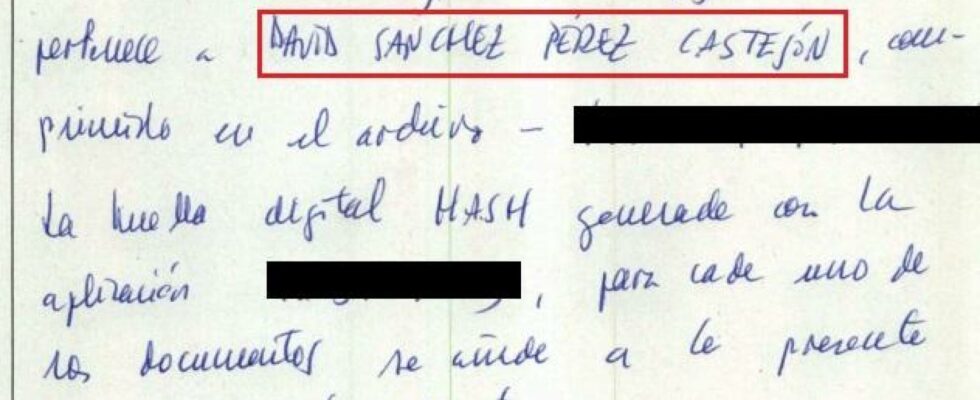 pertenece a DAVID SANCHEZ PÉREZ CASTEJÓN, com-
primido en el archivo -
La huella digital HASH generada con la
aplicación , para cada uno de
los documentos se añade a la presente